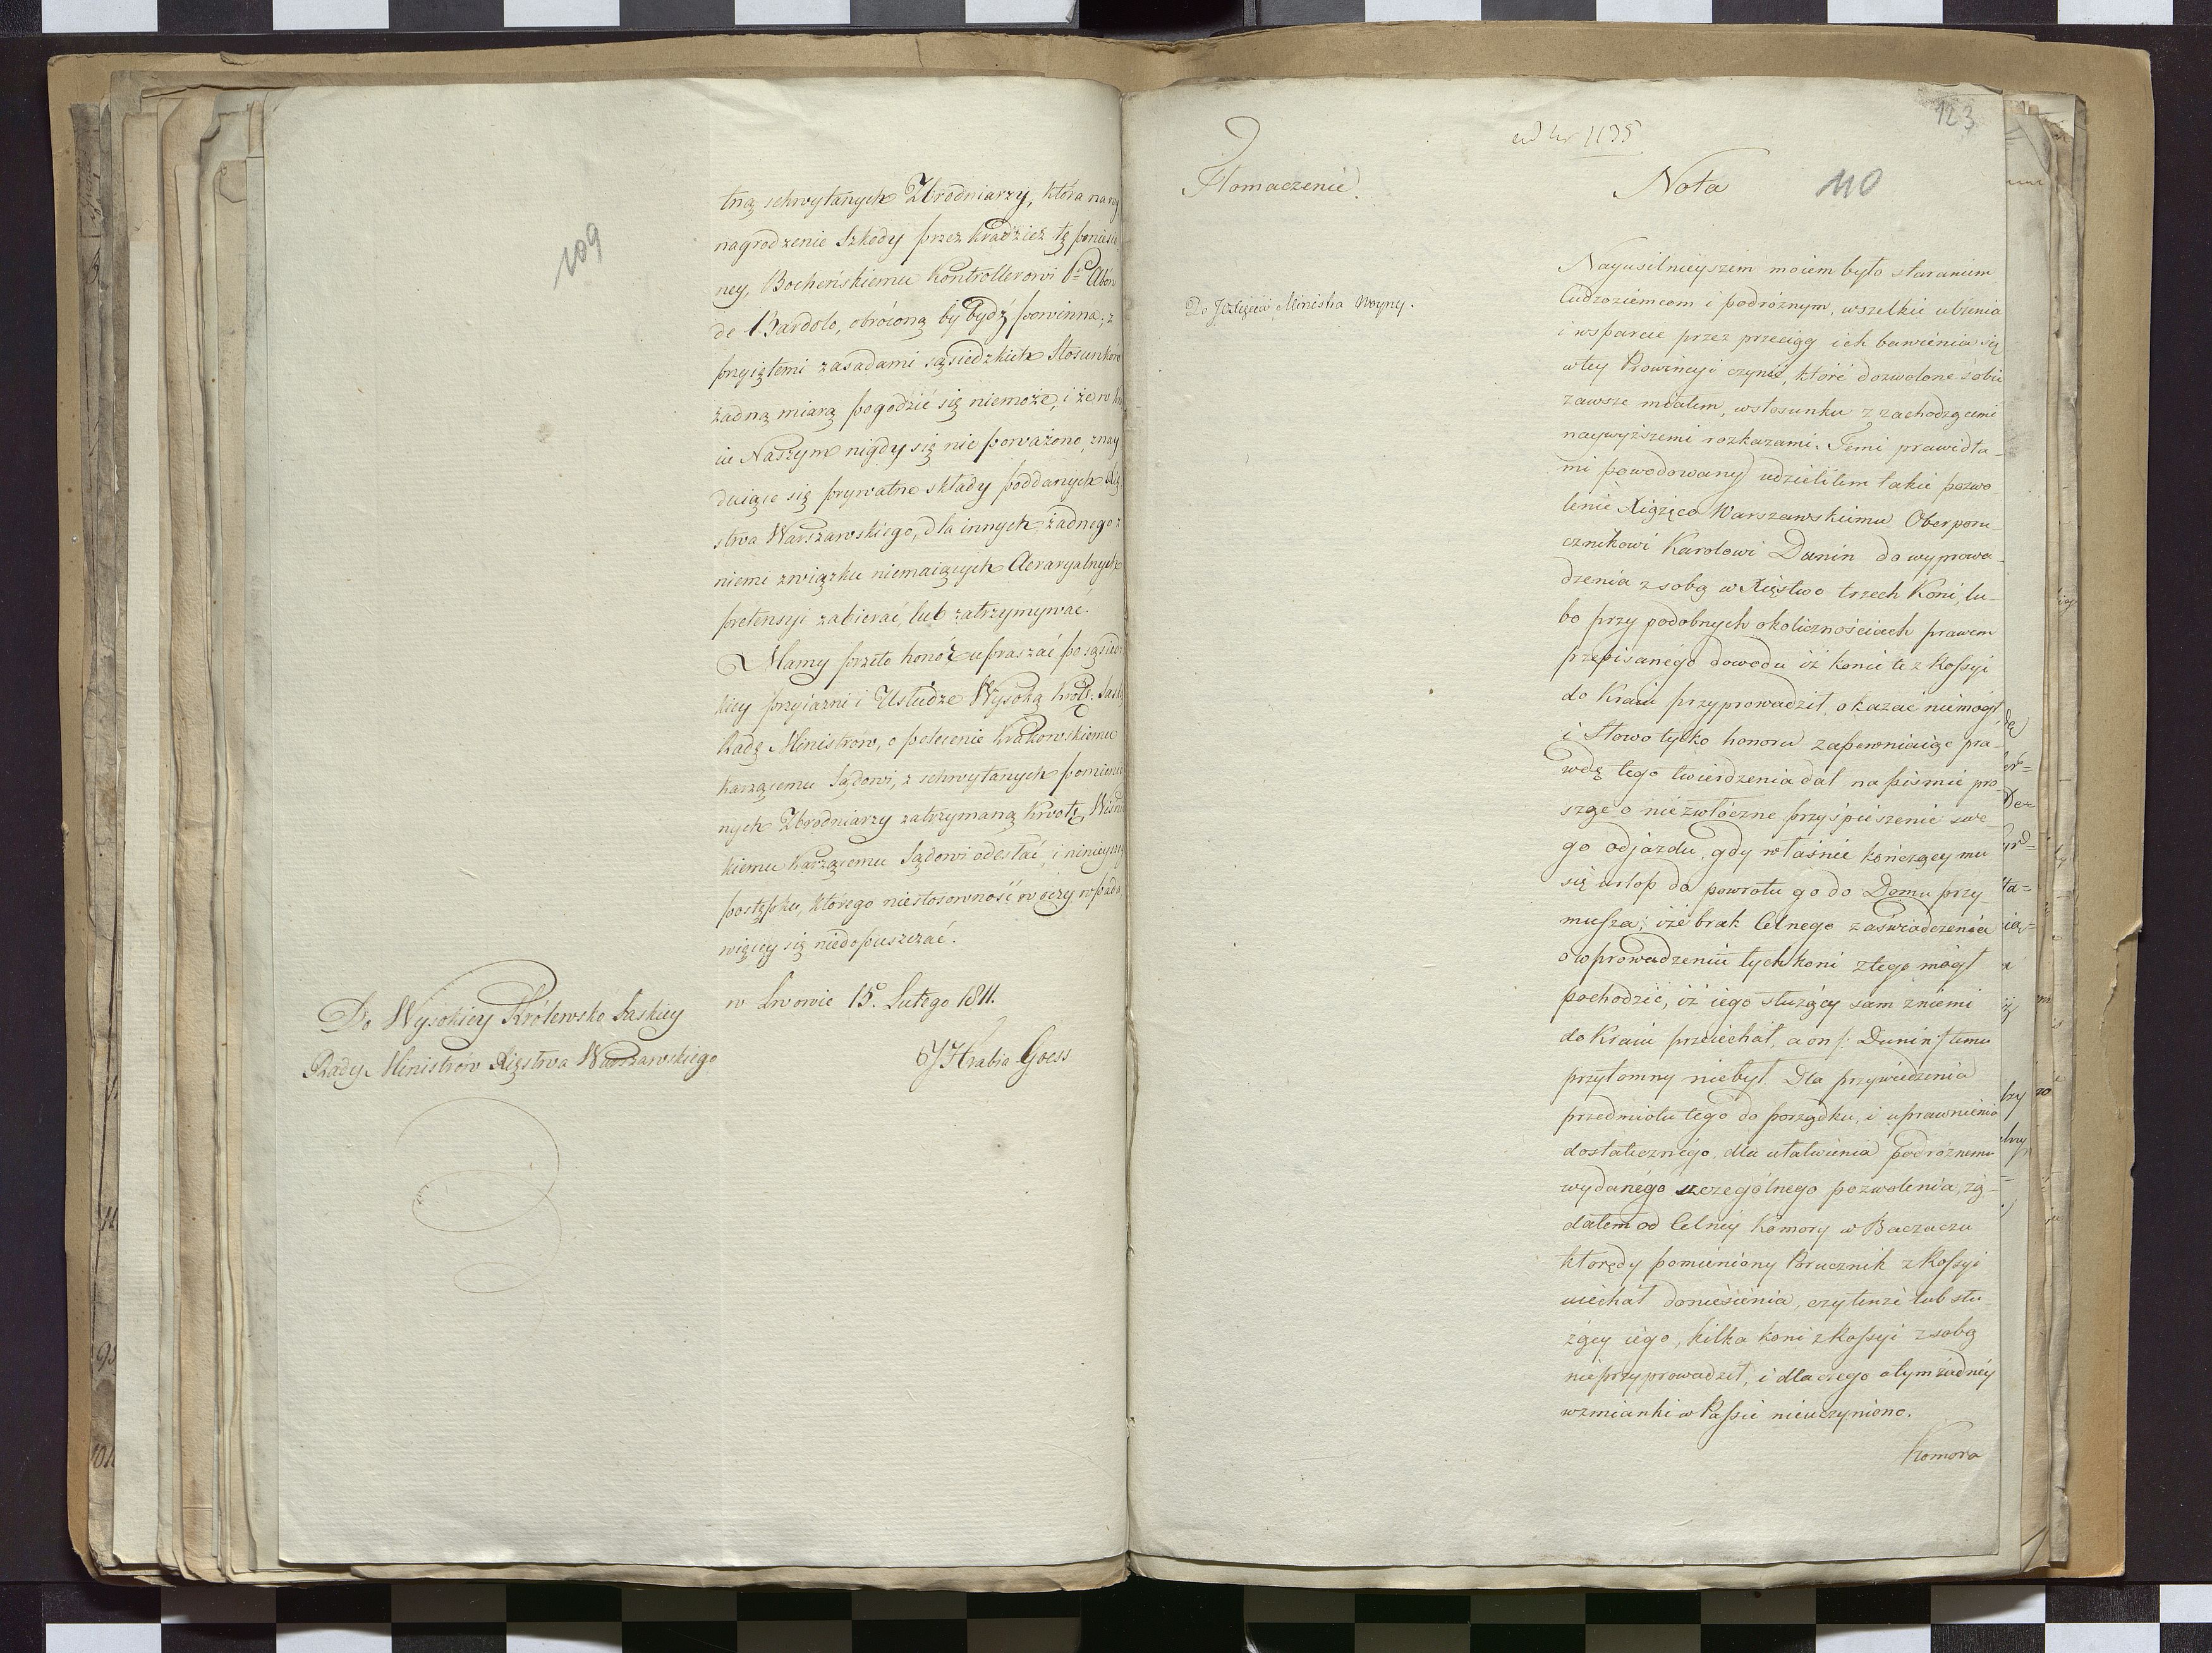 109
tną schwytanych Zbrodniarzy, która na wy
nagrodzenie Szkody przez kradzież tę poniesio
ney, Bocheńskiemu Kontrollerowi
de Bardolo, obróconą by bydź powinna; z
przyiętemi zasadami sąsiedzkich Stosunków
żadną miarą pogodzić się niemoże, i że w Kra
iu Naszym nigdy się nie poważono, znay
duiące się prywatne składy poddanych Xię
stwa Warszawskiego, dla innych żadnego z
niemi związku niemaiących Aeraryalnych
pretensyi zabierać, lub zatrzymywać.
Mamy przeto honor upraszać po sąsiedz
kiey przyiaźni i Usłudze Wysoką Król: Sask
Radę Ministrów, o polecenie Krakowskiemu
karzącemu Sądowi, z schwytanych pomienio
nych Zbrodniarzy zatrzymaną kwotę Wiśnic
kiemu karzącemu Sądowi odesłać, i ninieyszy
postępku, którego niestosowność w oczy wpada
więcey się niedopuszczać.
w Lwowie 15. Lutego 1811.
Do Wysokiey Królewsko Saskiey
Rady Ministrów Xięstwa Warszawskiego
Hrabia Goess
123
1135
Tłomaczenie.
Nota
110
Do Xcięcia Ministra Woyny.
Nayusilnieyszem moiem było staraniem
Cudzoziemcom i podróżnym, wszelkie ulżenia
i wsparcie przez przeciąg ich bawienia się
w tey Prowincyi czynić, które dozwolone sobie
zawsze miałem, w stosunku z zachodzącemi
naywyższemi rozkazami. Temi prawidła-
mi powodowany udzieliłem takie pozwo-
lenie Xiążęco Warszawskiemu Oberporu-
cznikowi Karolowi Dunin do wyprowa-
dzenia z sobą w Xięstwo trzech Koni, lu-
bo przy podobnych okolicznościach prawem
przepisanego dowodu iż konie te z Rossyi
do Kraiu przyprowadził, okazać niemógł,
i Słowo tylko honoru zapewniaiąc pra-
wdę tego twierdzenia dał na piśmie pro-
sząc o niezwłoczne przyśpieszenie swe-
go odjazdu, gdy właśnie kończący mu
się urlop do powrotu go do Domu przy-
musza; iże brak Celnego zaświadczenia
o wprowadzeniu tych koni z tego mógł
pochodzić, iż iego służący sam z niemi
do Kraiu przeiechał, a on /: Dunin :/ temu
przytomny niebył. Dla przywiedzenia
przedmiotu tego do porządku, i uprawnienia
dostatecznego, dla ułatwienia podróżnemu
wydanego szczególnego pozwolenia, żą-
dałem od Celney Komory w Baczaczu
którędy pomieniony Porucznik z Rossyi
wiechał doniesienia, czy tenże lub słu-
żący iego, kilka koni z Rossyi z sobą
nieprzyprowadził, i dlaczego o tym żadney
wzmianki w Passie nieuczyniono.
Komora